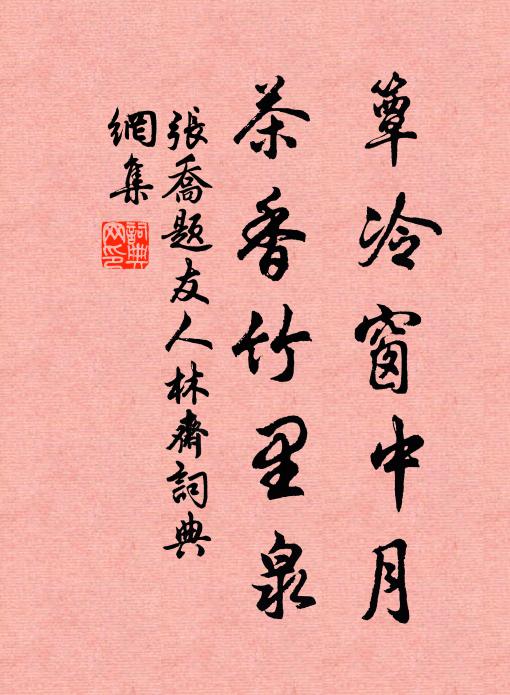 簟冷窗中月
茶香竹里泉
張喬題友人林齋詞典
網集
詞典網印